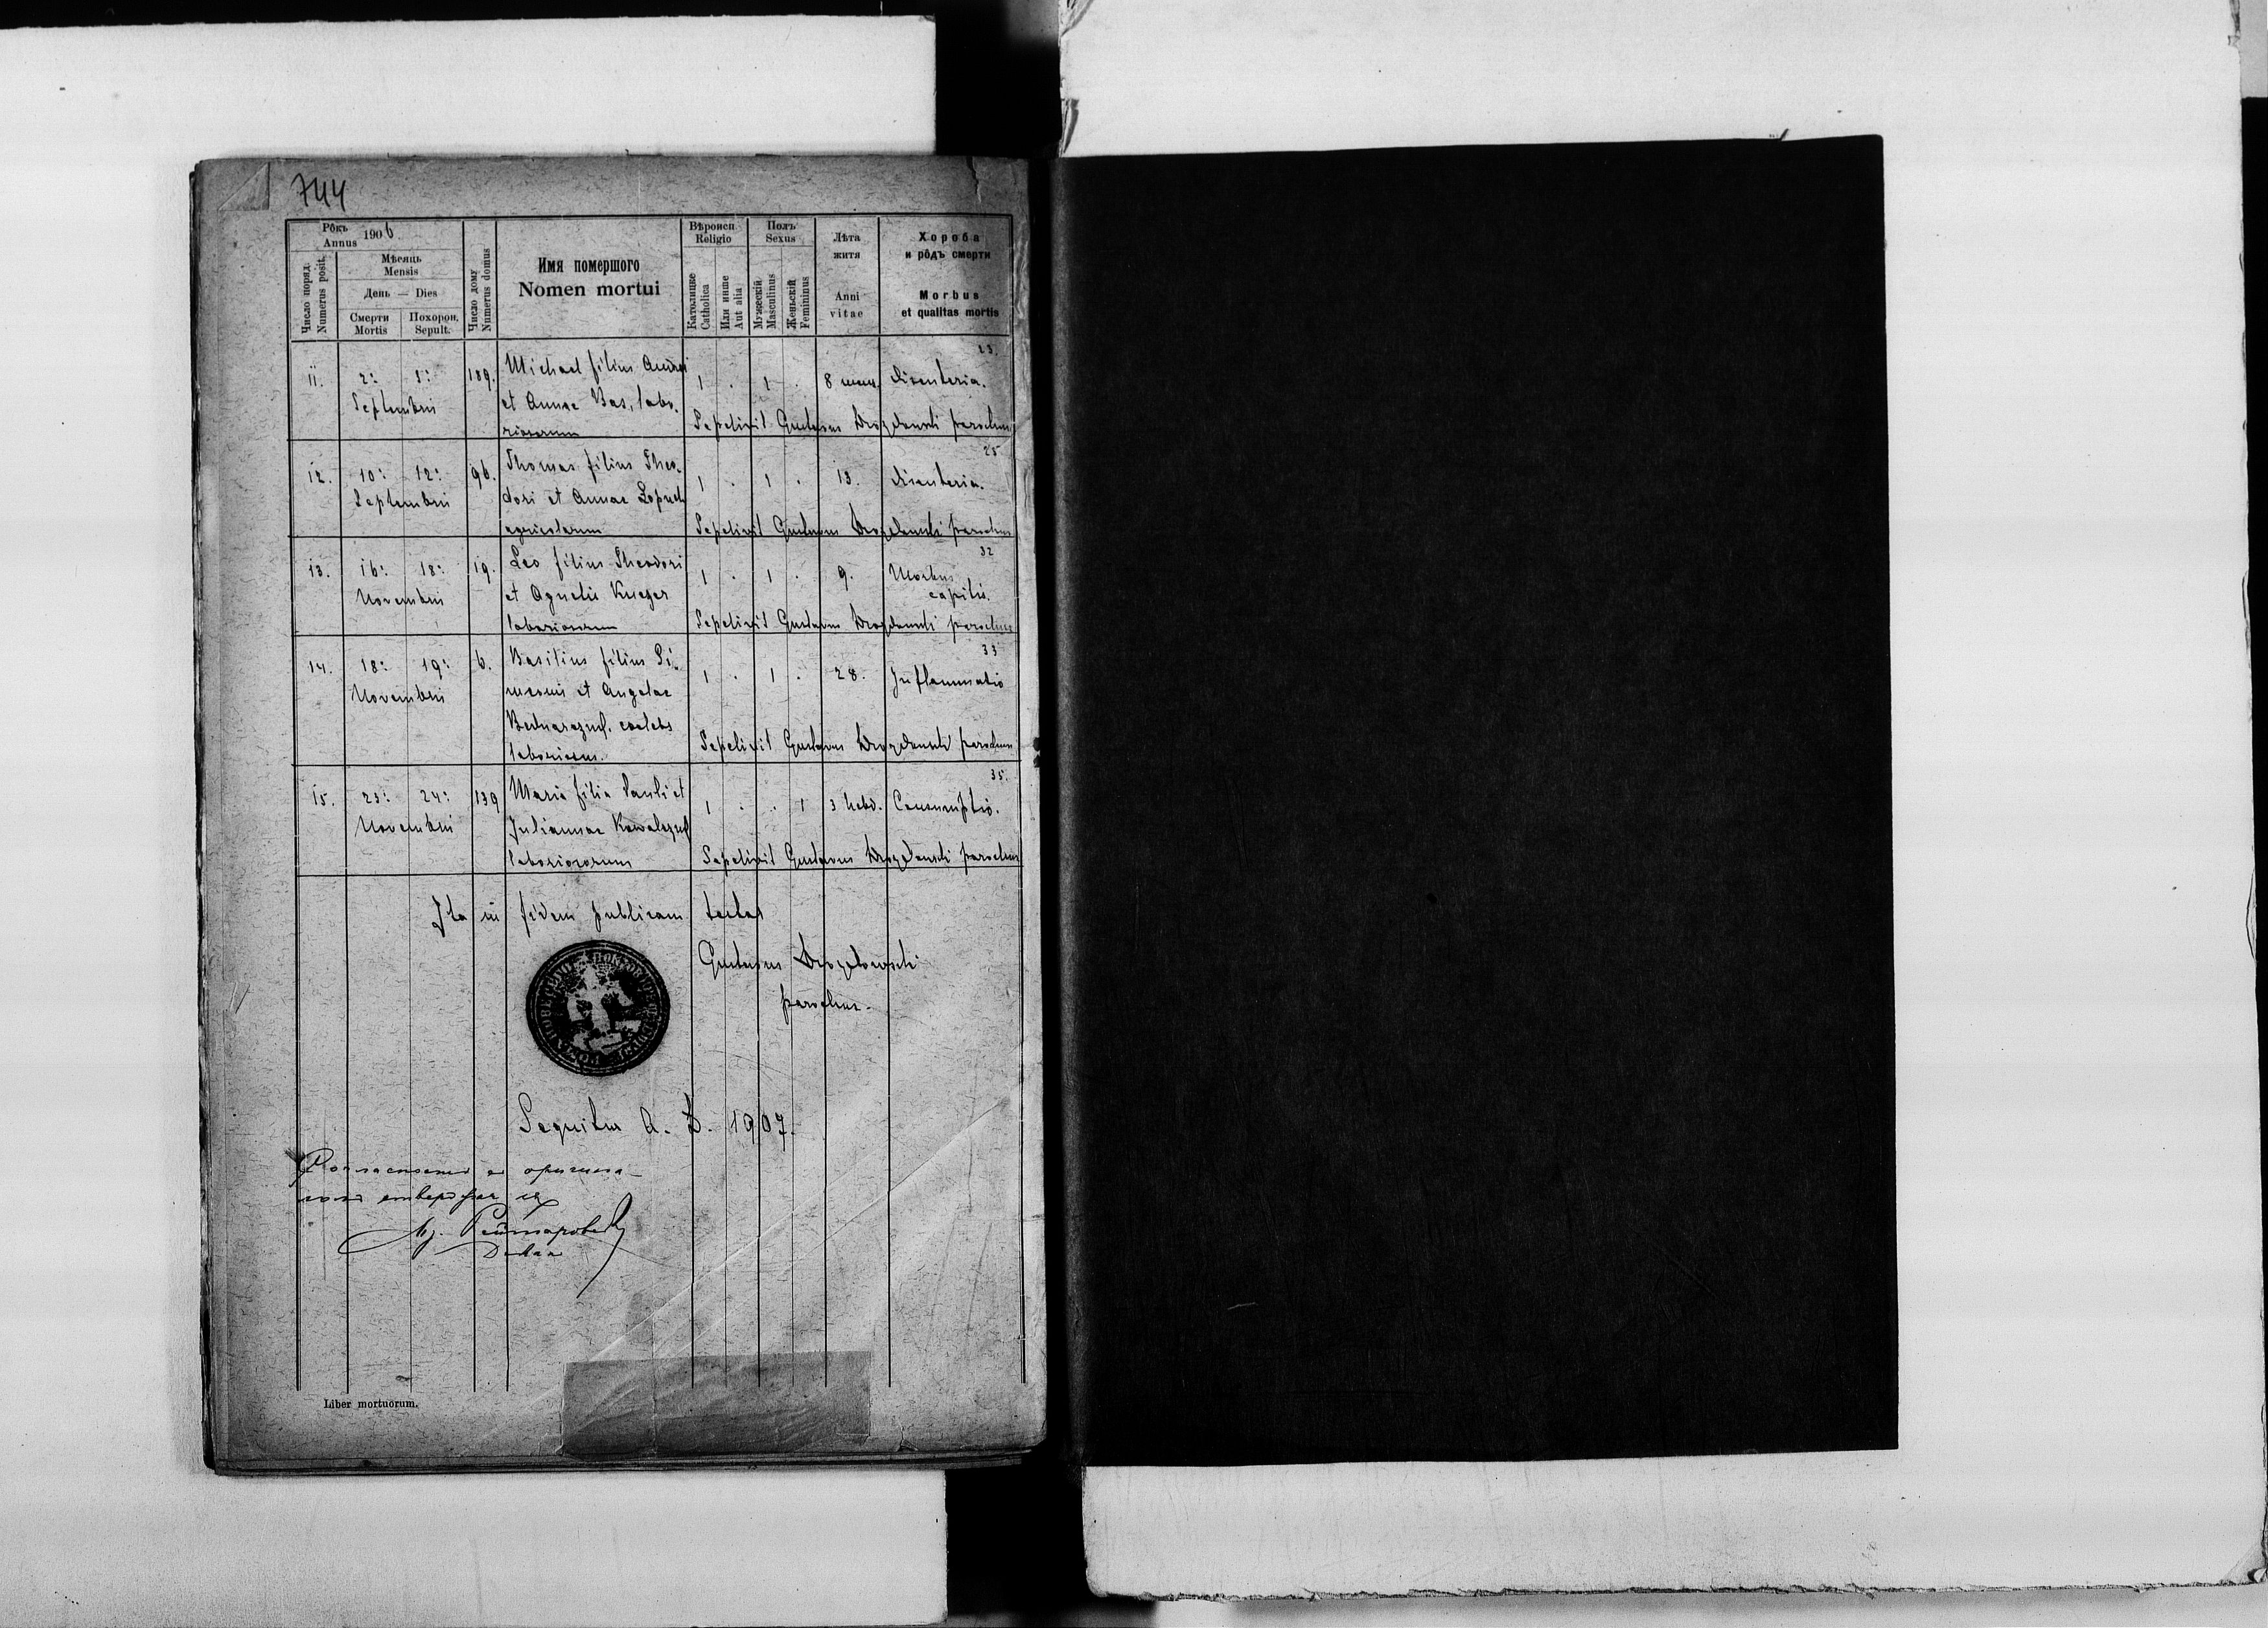 744
Рôкъ Annus 1906.
Число поряд. Numerus posit.
Мѣсяць Mensis
День — Dies
Смерти Mortis
Похорон. Sepult.
Число дому Numerus domus
Имя помершого
Nomen mortui
Вѣроисп. Religio
Католицке Catholica
Или инше Aut alia
Полъ Sexus
Мужескій Masculinus
Женьскій Femininus
Лѣта житя
Anni vitae
Хороба и рôдъ смерти
Morbus et qualitas mortis
23.
11. 2: 3: 189. Michael filius Andrei 1 . 1 . 8 men. disenteria.
Septembris et Annae Bas, labo-
riosorum Sepelivit Gustavus Drozdowski parochus
25
12. 10: 12: 96. Thomas filius Theo- 1 . 1 . 13. disenteria.
Septembris dori et Annae Lopuch
agricolarum Sepelivit Gustavus Drozdowski parochus
32
13. 16: 18: 19. Leo filius Theodori 1 . 1 . 9. Morbus
Novembris et Agnetis Krieger capitis.
laboriosorum Sepelivit Gustavus Drozdowski parochus
33
14. 18: 19: 6. Basilius filius Si- 1 . 1 . 28. Inflammatio
Novembris meonis et Angelae
coelebs Sepelivit Gustavus Drozdowski parochus
laboriosus.
35.
15. 23: 24: 139 Maria filia Pauli et 1 . . 1 3 hebd. Consumptio.
Novembris Juliannae
laboriosorum Sepelivit Gustavus Drozdowski parochus
Ita in fidem publicam testor
Gustavus Drozdowski
parochus.
Sequitur A. D. 1907.
Liber mortuorum.